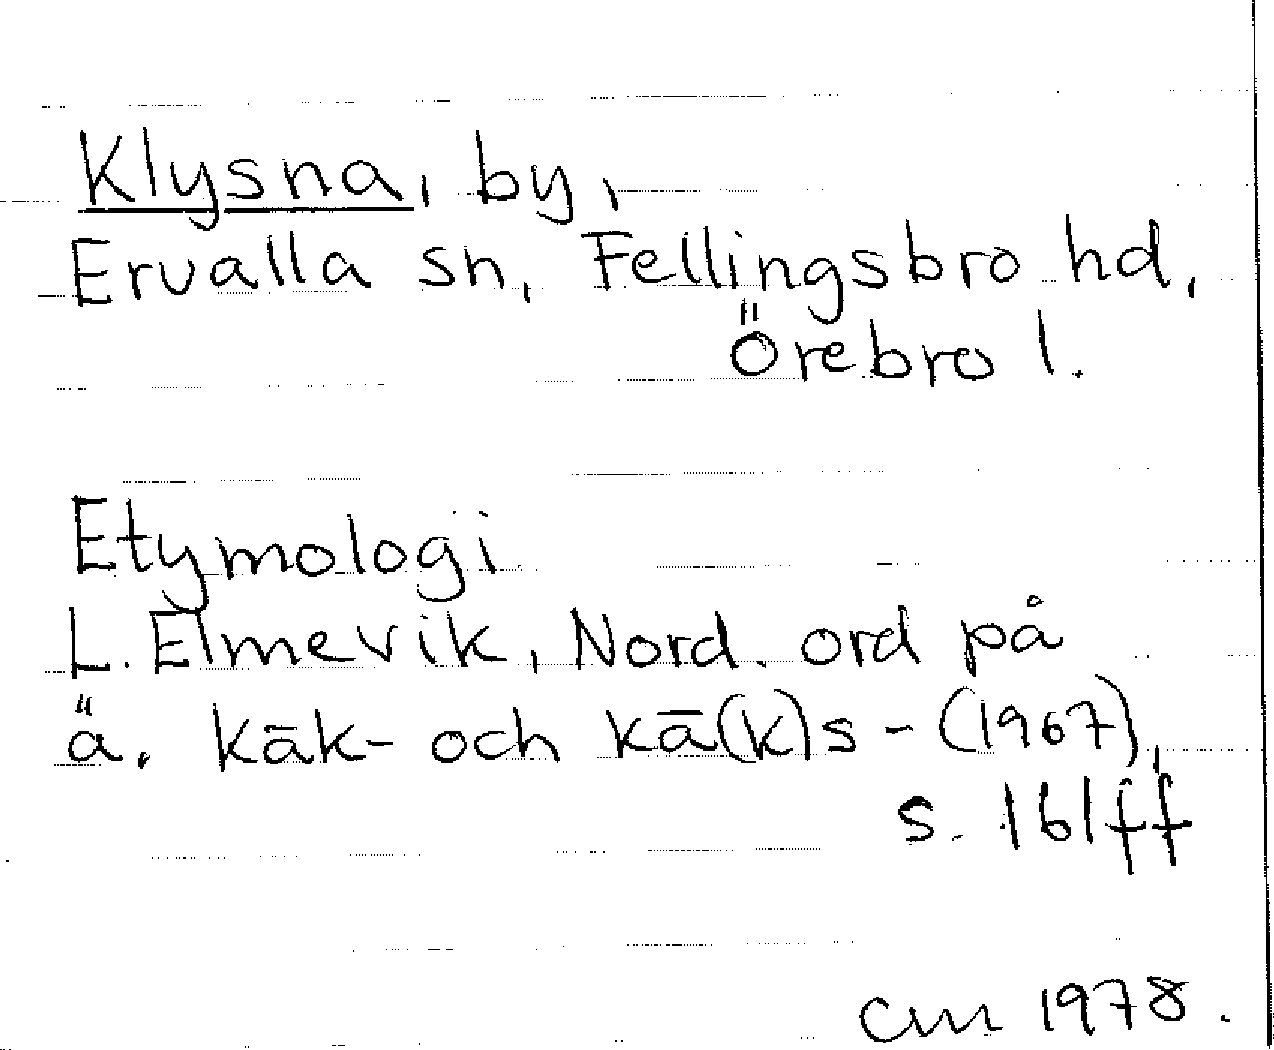 Klysna, by,
Ervalla sn, Fellingsbro hd,
Örebro l.
Etymologi
L. Elmevik, Nord. ord på
ä. kāk- och kā(k)s- (1967),
s. 161ff
CM 1978.